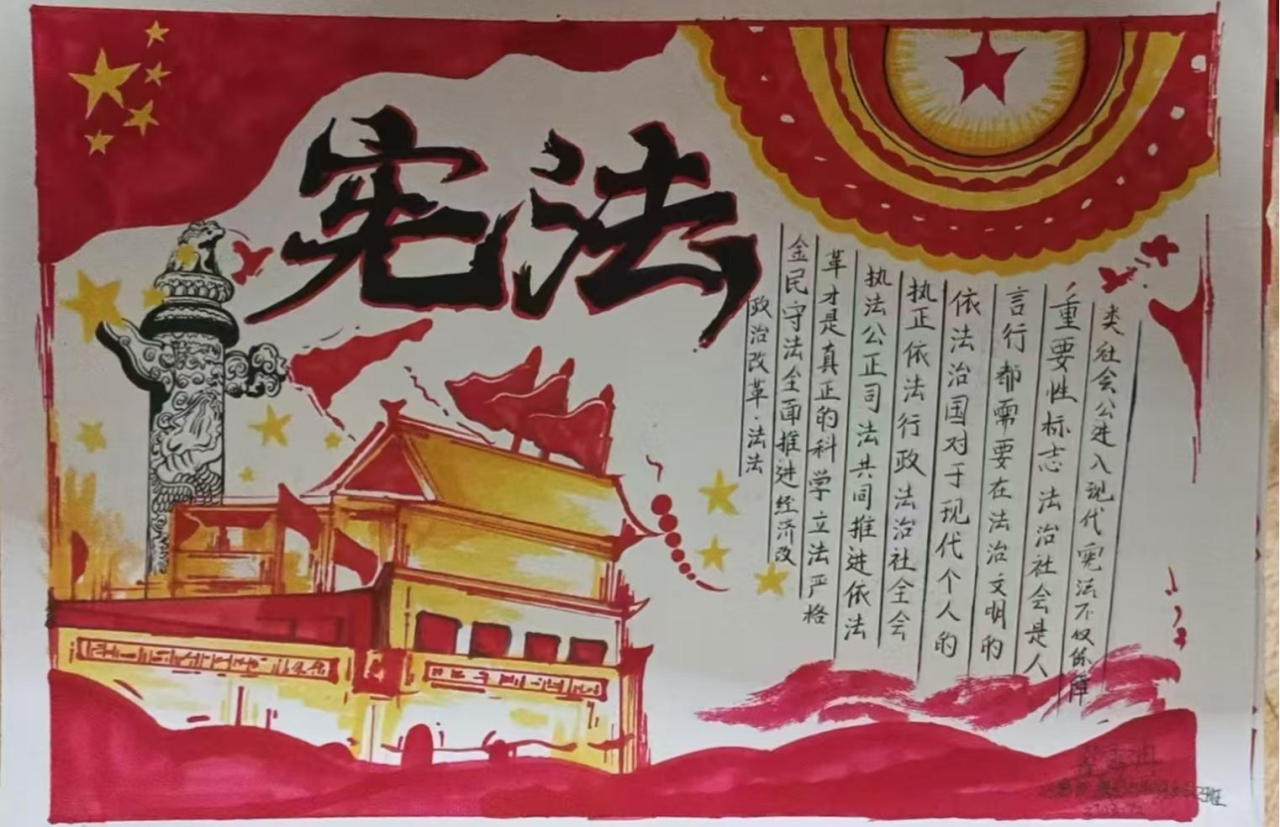 宪法
政治改革.法法
金民守法全面推进经济改
革才是真正的科学立法严格
执法公正司法共同推进依法
执正依法行政法治社全会
依法治国对于现代个人的
言行都需要在法治文明的
重要性标志法治社会是人
类社会公进入现代宪法不仅保障